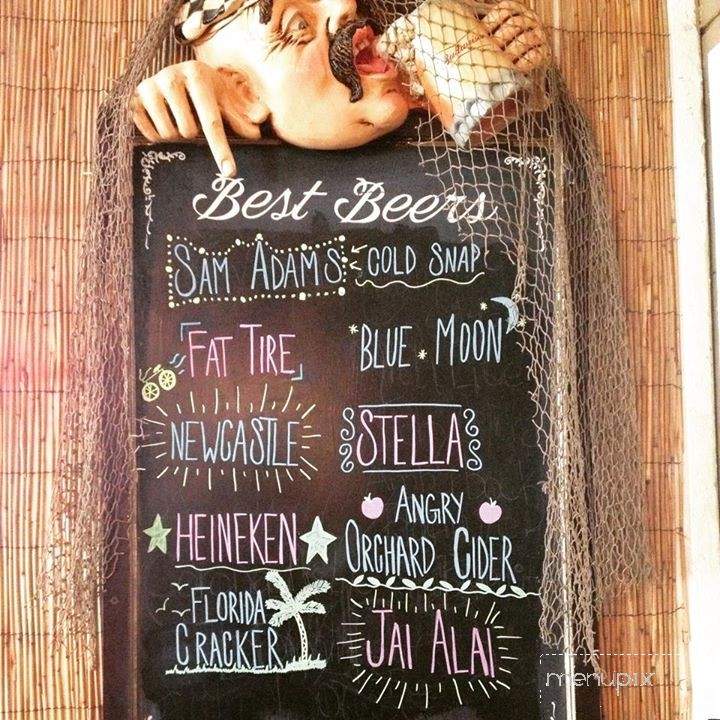 Best Beers
SAM ADAMS COLD SNAP
FAT TIRE
BLUE MOON
NEWCASTLE
STELLA
HEINEKEN
ANGRY
ORCHARD CIDER
FLORIDA
CRACKER
JAI ALAI
menupix